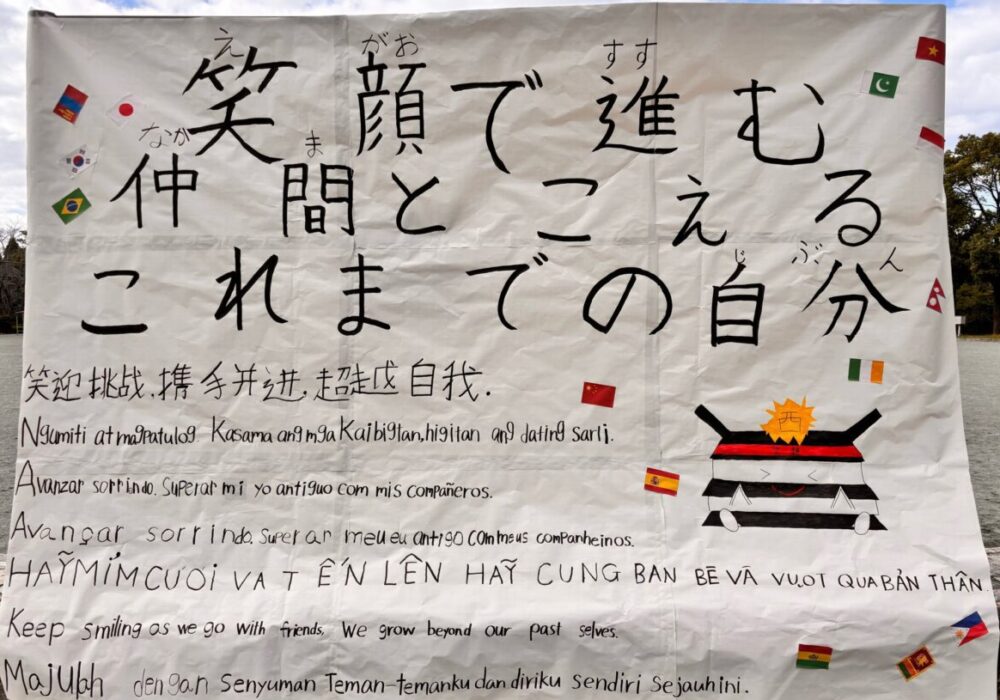 え がお すす
笑顔で進む
なか ま
仲間とこえる
じ ぶん
これまでの自分
笑迎挑战.携手并进.超越自我.
Ngumiti at magpatulog Kasama ang mga Kaibigtan, higitan ang dating sarli.
Avanzar sorrindo. Superar mi yo antiguo com mis compañeros.
Avançar sorrindo. Superar meu eu antigo com meus companheinos.
HAỸ MỈM CƯOI VA T ẾN LÊN HAỸ CUNG BAN BĒ VÃ VUỌT QUA BẢN THÂN
Keep smiling as we go with friends, We grow beyond our past selves.
Majulah dengan Senyuman Teman-temanku dan diriku sendiri Sejauh ini.
西